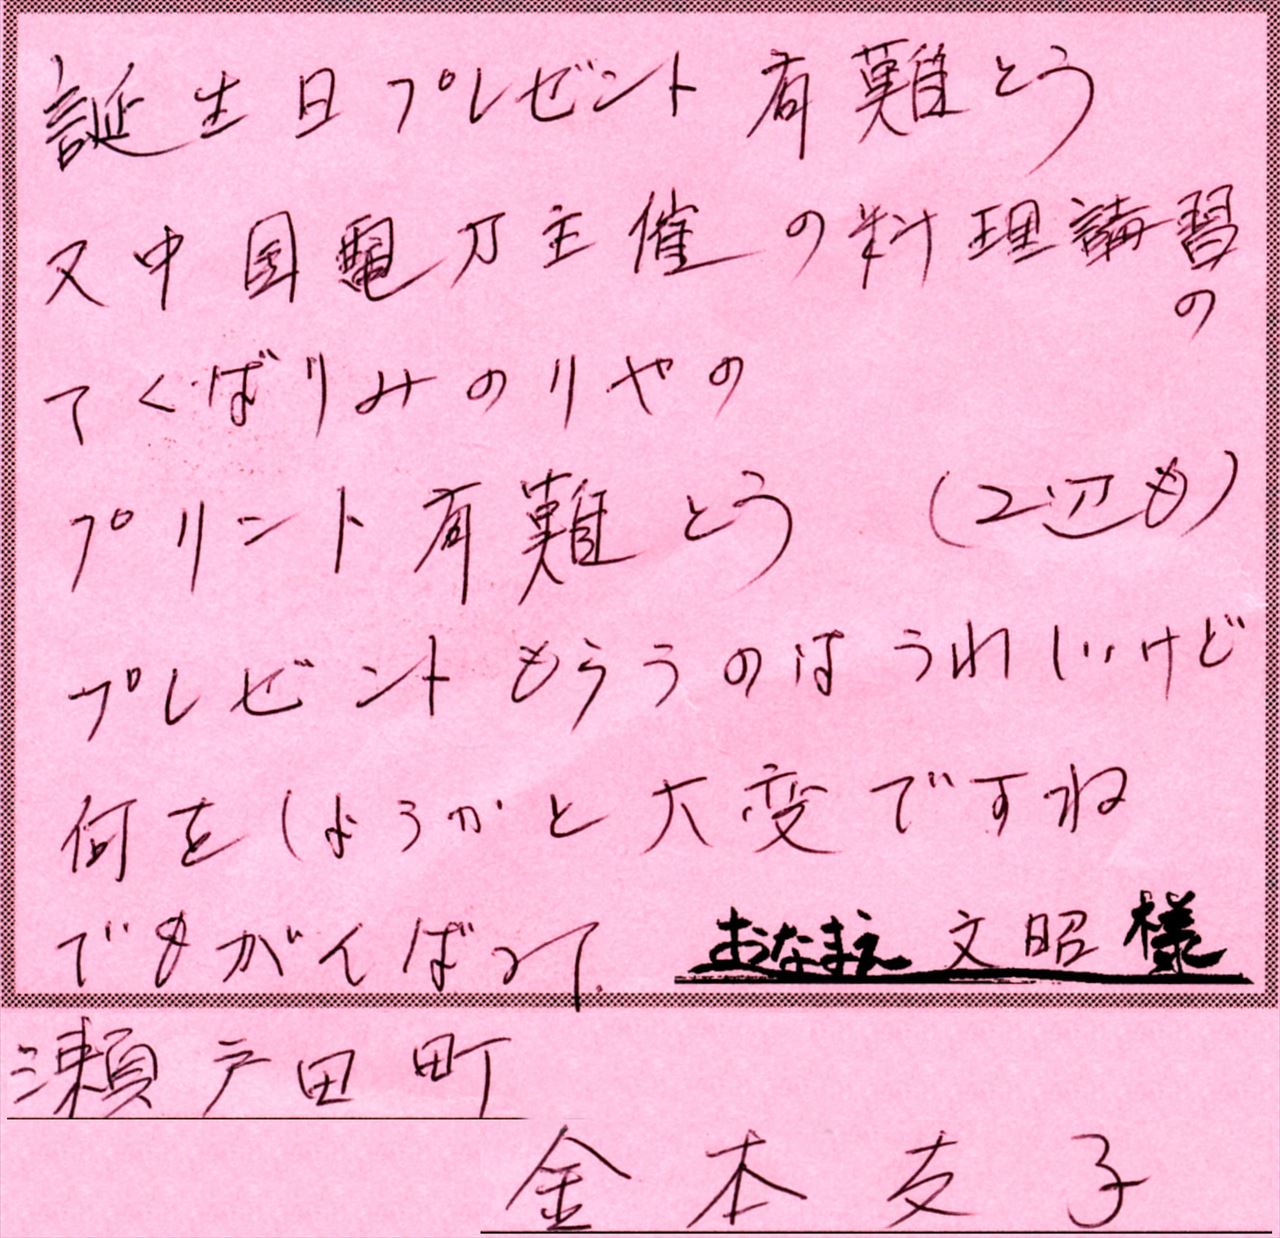 誕生日プレゼント有難とう
又中国電力主催の料理講習の
てくばりみのりやの
プリント有難とう （2辺も）
プレゼントもらうのはうれしいけど
何をしようかと大変ですね
でもがんばって
おなまえ 文昭 様
瀬戸田町
金本友子